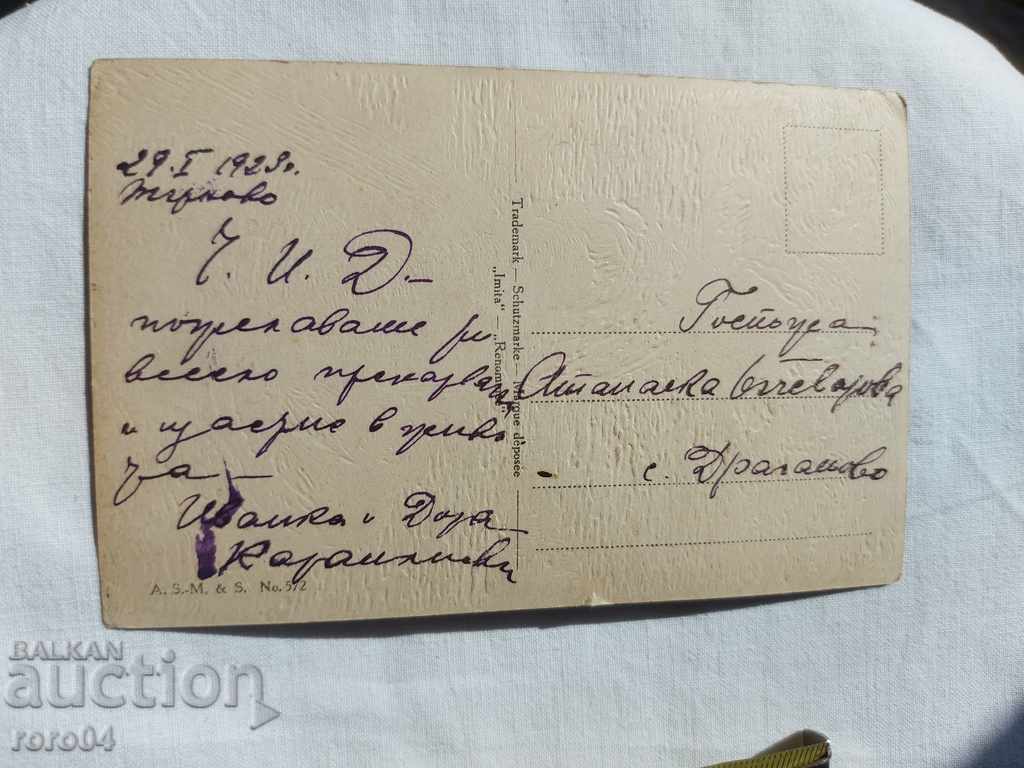 29.I 1923 г.
Ч. И. Д. –
пожелаваме ви
весело прекарване
и щастие в живо
та –
Иванка и Дора
Trademark — Schutzmarke — Marque déposée
„Imita“ —
Госпожа
Атанаска
с. Драганово
A. S.-M. & S. No. 572
BALKAN
auction
roro04